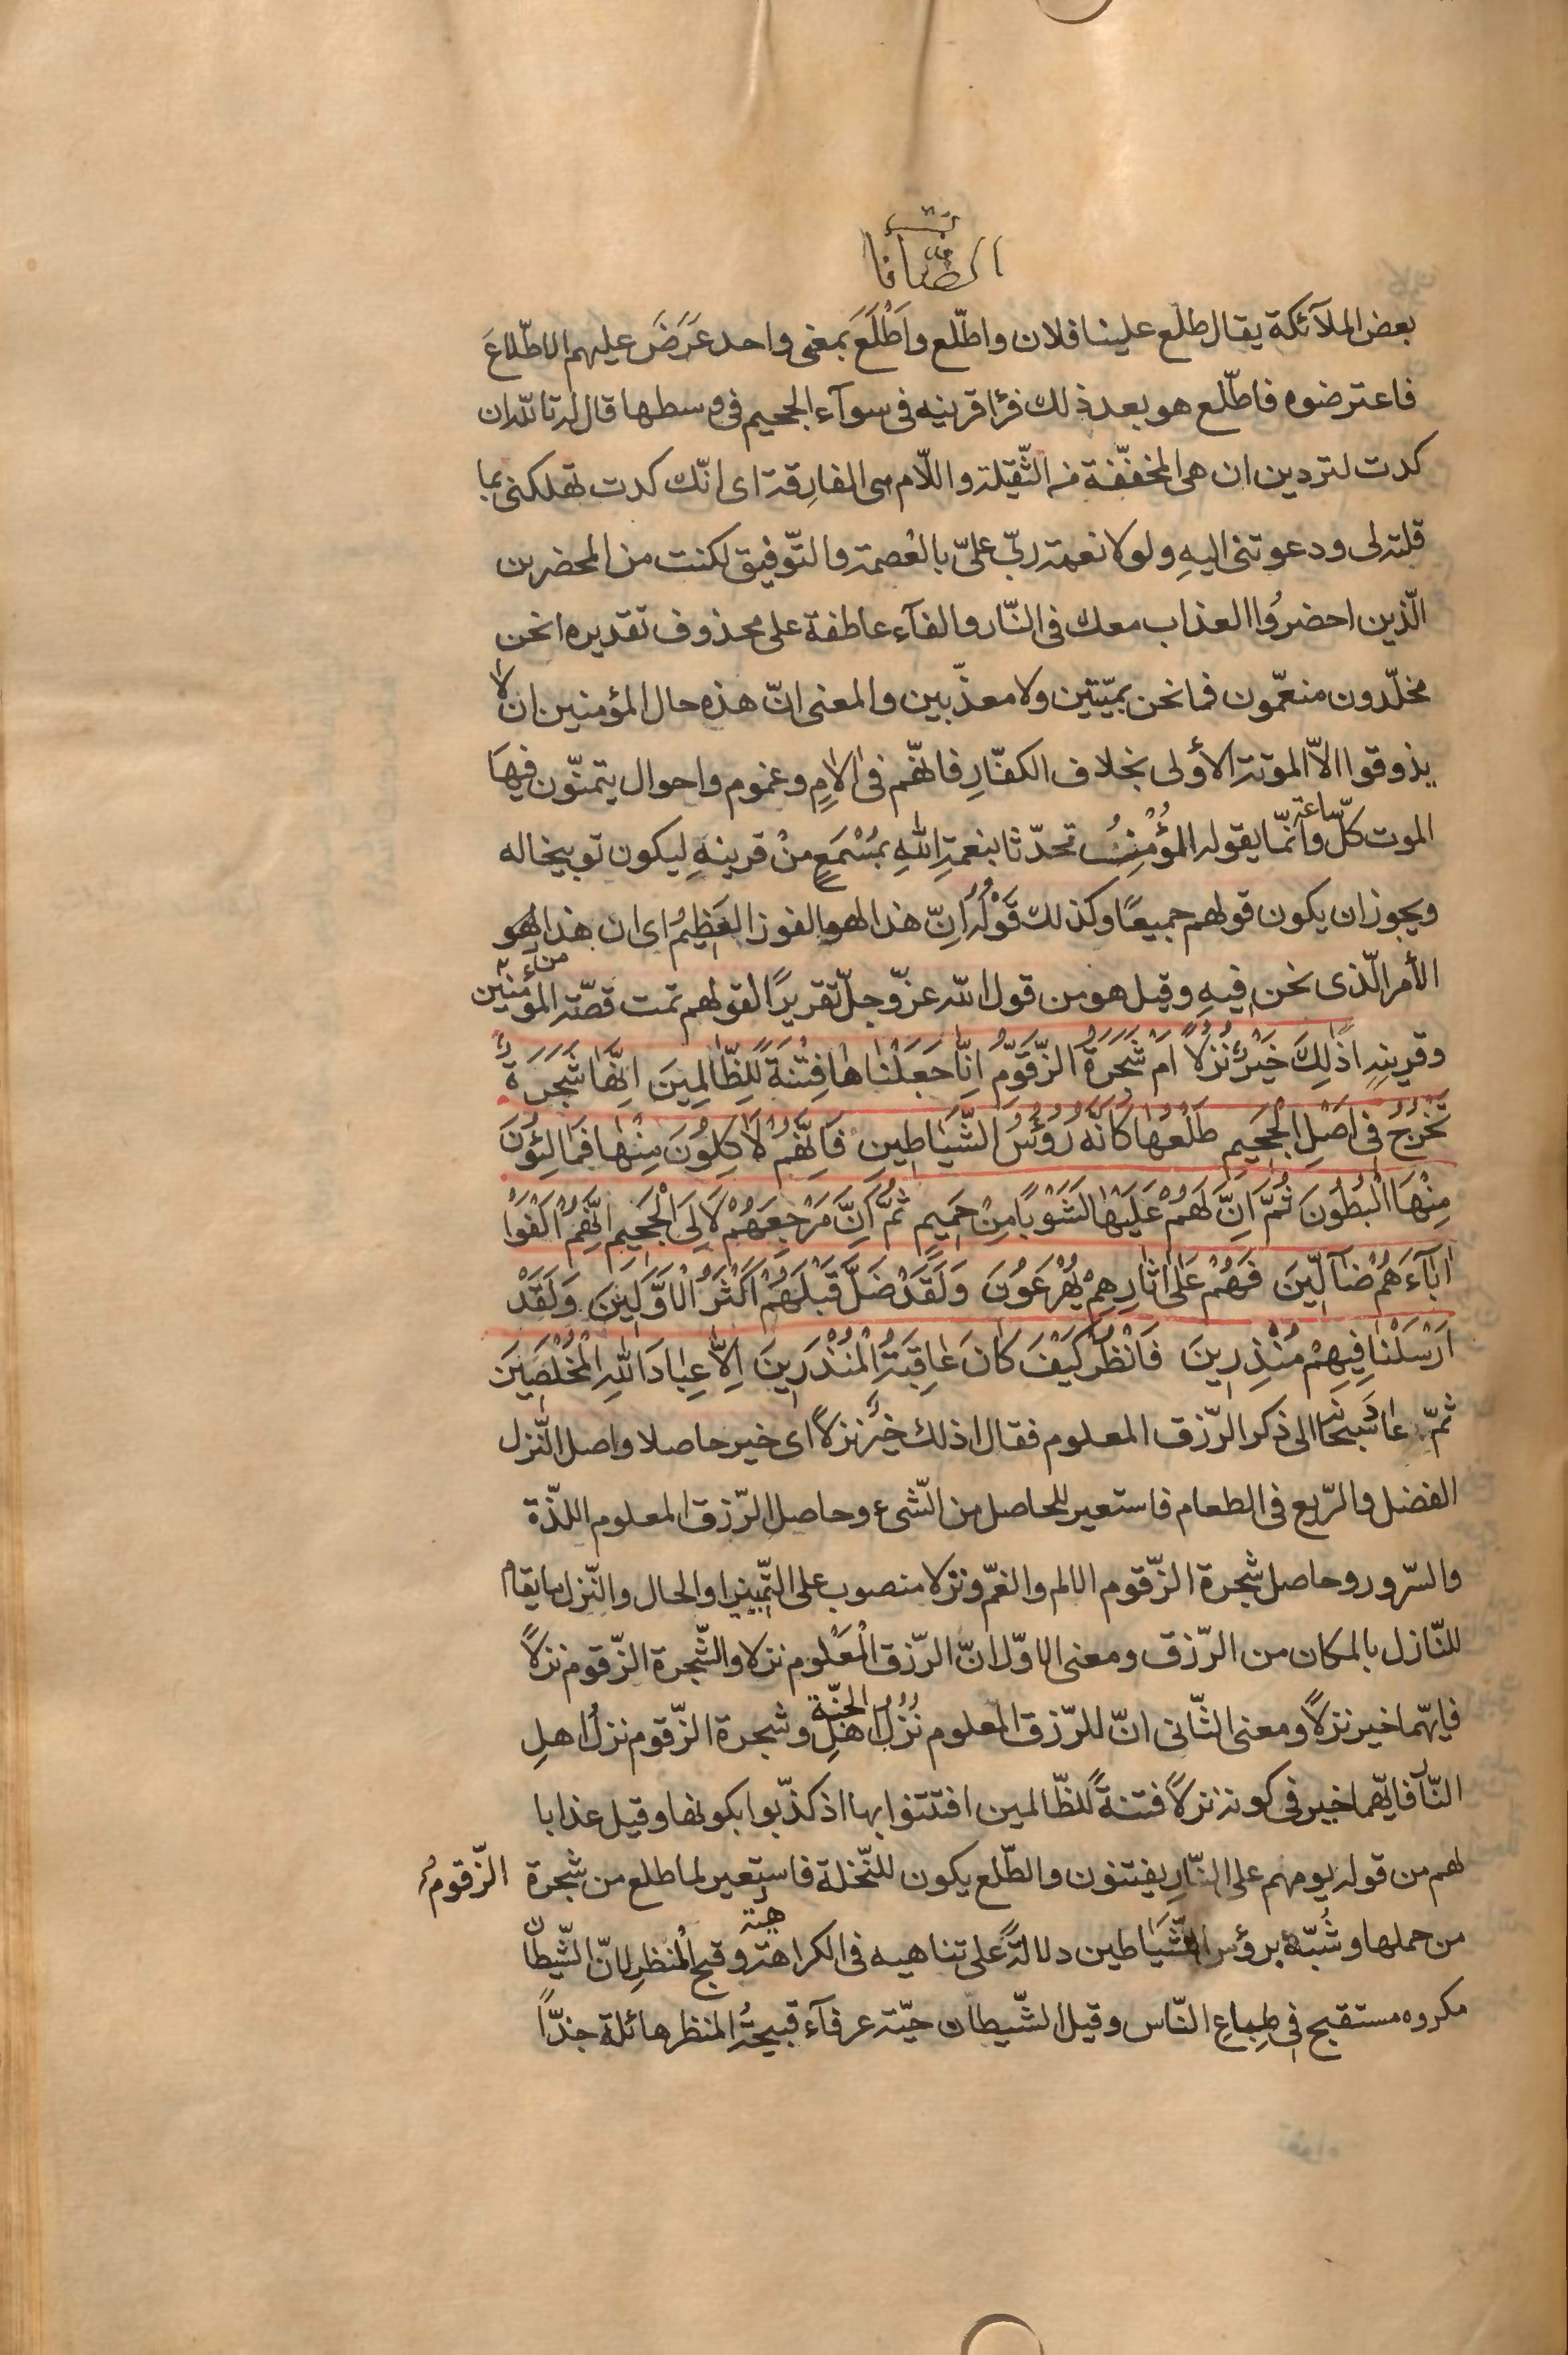 الصّافات
بعض الملآئكة يقال طلع علينا فلان واطّلع واَطْلَعَ بمعنى واحد عَرَضَ عليهم الاطّلاعَ
فاعترضوه فاطّلع هو بعد ذلك فرٰا قرينه فى سوآء الجحيم فى وسطها قال له تاللّه ان
كدت لتردين ان هى المخفّفة من الثّقيلة واللّام هى الفارِقة اى انّك كدت تهلكنى بما
قلته لى ودعوتنى اليهِ ولولا نعمة ربّى علىّ بالعْصمة والتّوفيق لكنت من المحضرين
الّذين احضرُوا العذاب معك فى النّار والفآء عاطفة على محذوف تقديره انحن
مخلّدون منعّمون فما نحن بميّتين ولا معذّبين والمعنى انّ هذه حال المؤمنين ان لا
يذوقوا الاّ الموتة الأولى بخلاف الكفّارِ فانّهم فى الاٰمٍ وغموم واحوال يتمنّون فيهَا
الموت كلّ ساعة وانّما يقوله المؤْمِنُ تحدّثا بنعمةِ اللهِ بمَسْمَعٍ منْ قرينهِ ليكون توبيخا له
ويجوز ان يكون قولهم جميعًا وكذلك قَوْلُهُ اِنّ هذا لهو الفوز العَظِيمُ اى ان هذا لهو
الأمر الّذى نحن فيهِ وقيل هو من قول اللّه عزّ وجلّ تقريرًا لقولهم تمت قصّة المؤمنين
وقرينهِ اَذٰلِكَ خَيْرٌ نُزُلاً اَمْ شَجَرَةُ الزَّقّوُمِ اِنّٰا جَعَلْنٰاهٰا فِتْنَةً لِلظّٰالِمِينَ اِنَّهٰا شَجَرَةٌ
تَخْرُجُ فى اَصْلِ الْجَحيمِ طَلْعُهٰا كَاَنَّهُ رُؤُسُ الشَّيٰاطِينِ فَاِنَّهُمْ لَاٰكِلُونَ مِنْهٰا فَمٰالِئُونَ
مِنْهَا الْبُطُونَ ثُمَّ اِنَّ لَهُمْ عَلَيْهٰا لَشَوْبًا مِنْ حَمِيمٍ ثُمَّ اِنَّ مَرْجِعَهُمْ لَاِلَى الْجَحيمِ اِنَّهُمْ اَلْفَوْا
اٰبٰآءَهُمْ ضٰآلّينَ فَهُمْ عَلىٰ اٰثٰارِهِمْ يُهْرَعُونَ وَلَقَدْ ضَلَّ قَبْلَهُمْ اَكْثَرُ الْاَوَّلينَ وَلَقَدْ
اَرْسَلْنٰا فيهِمْ مُنْذِرينَ فَانْظُرْ كَيْفَ كٰانَ عٰاقِبَةُ الْمُنْذَرينَ اِلاّٰ عِبٰادَ اللهِ الْمُخْلَصينَ
ثمّ عاد سبحانه الى ذكر الرّزق المعلوم فقال اذلك خيرٌ نزلاً اى خير حاصلا واصل النّزل
الفضل والرّيع فى الطعام فاستعير للحاصل من الشّىء وحاصل الرّزق المعلوم اللذّة
والسّرور وحاصل شجرة الزّقوم الالم والغمّ ونزلا منصوب على التّمييز او الحال والنّزل ما يقام
للنّازل بالمكان من الرّزق ومعنى الاوّل انّ الرّزق الْمَعْلوم نزلا والشّجرة الزّقوم نزلاً
فايّهما خير نزلاً ومعنى الثّانى انّ للرّزق المعلوم نُزُلُ اهلِ الجنّة وشجرة الزّقوم نزلُ اهلِ
النّار فايّهما خير فى كونه نزلاً فتنةً للظّالمين افتتنوا بها اذ كذّبوا بكونها وقيل عذابا
لهم من قوله يوم هم على النّارِ يفتنون والطّلع يكون للنّخلة فاستعير لما طلع من شجرة الزّقوم
من حملها وشُبّه برؤس الشّيَاطين دلالةً على تناهيه فى الكراهة وقبح المنظر لانّ الشّيطان
مكروه مستقبح فى طِباعِ النّاس وقيل الشّيطان حيّة عرفآء قبيحةُ المنظر هائلة جدّاً